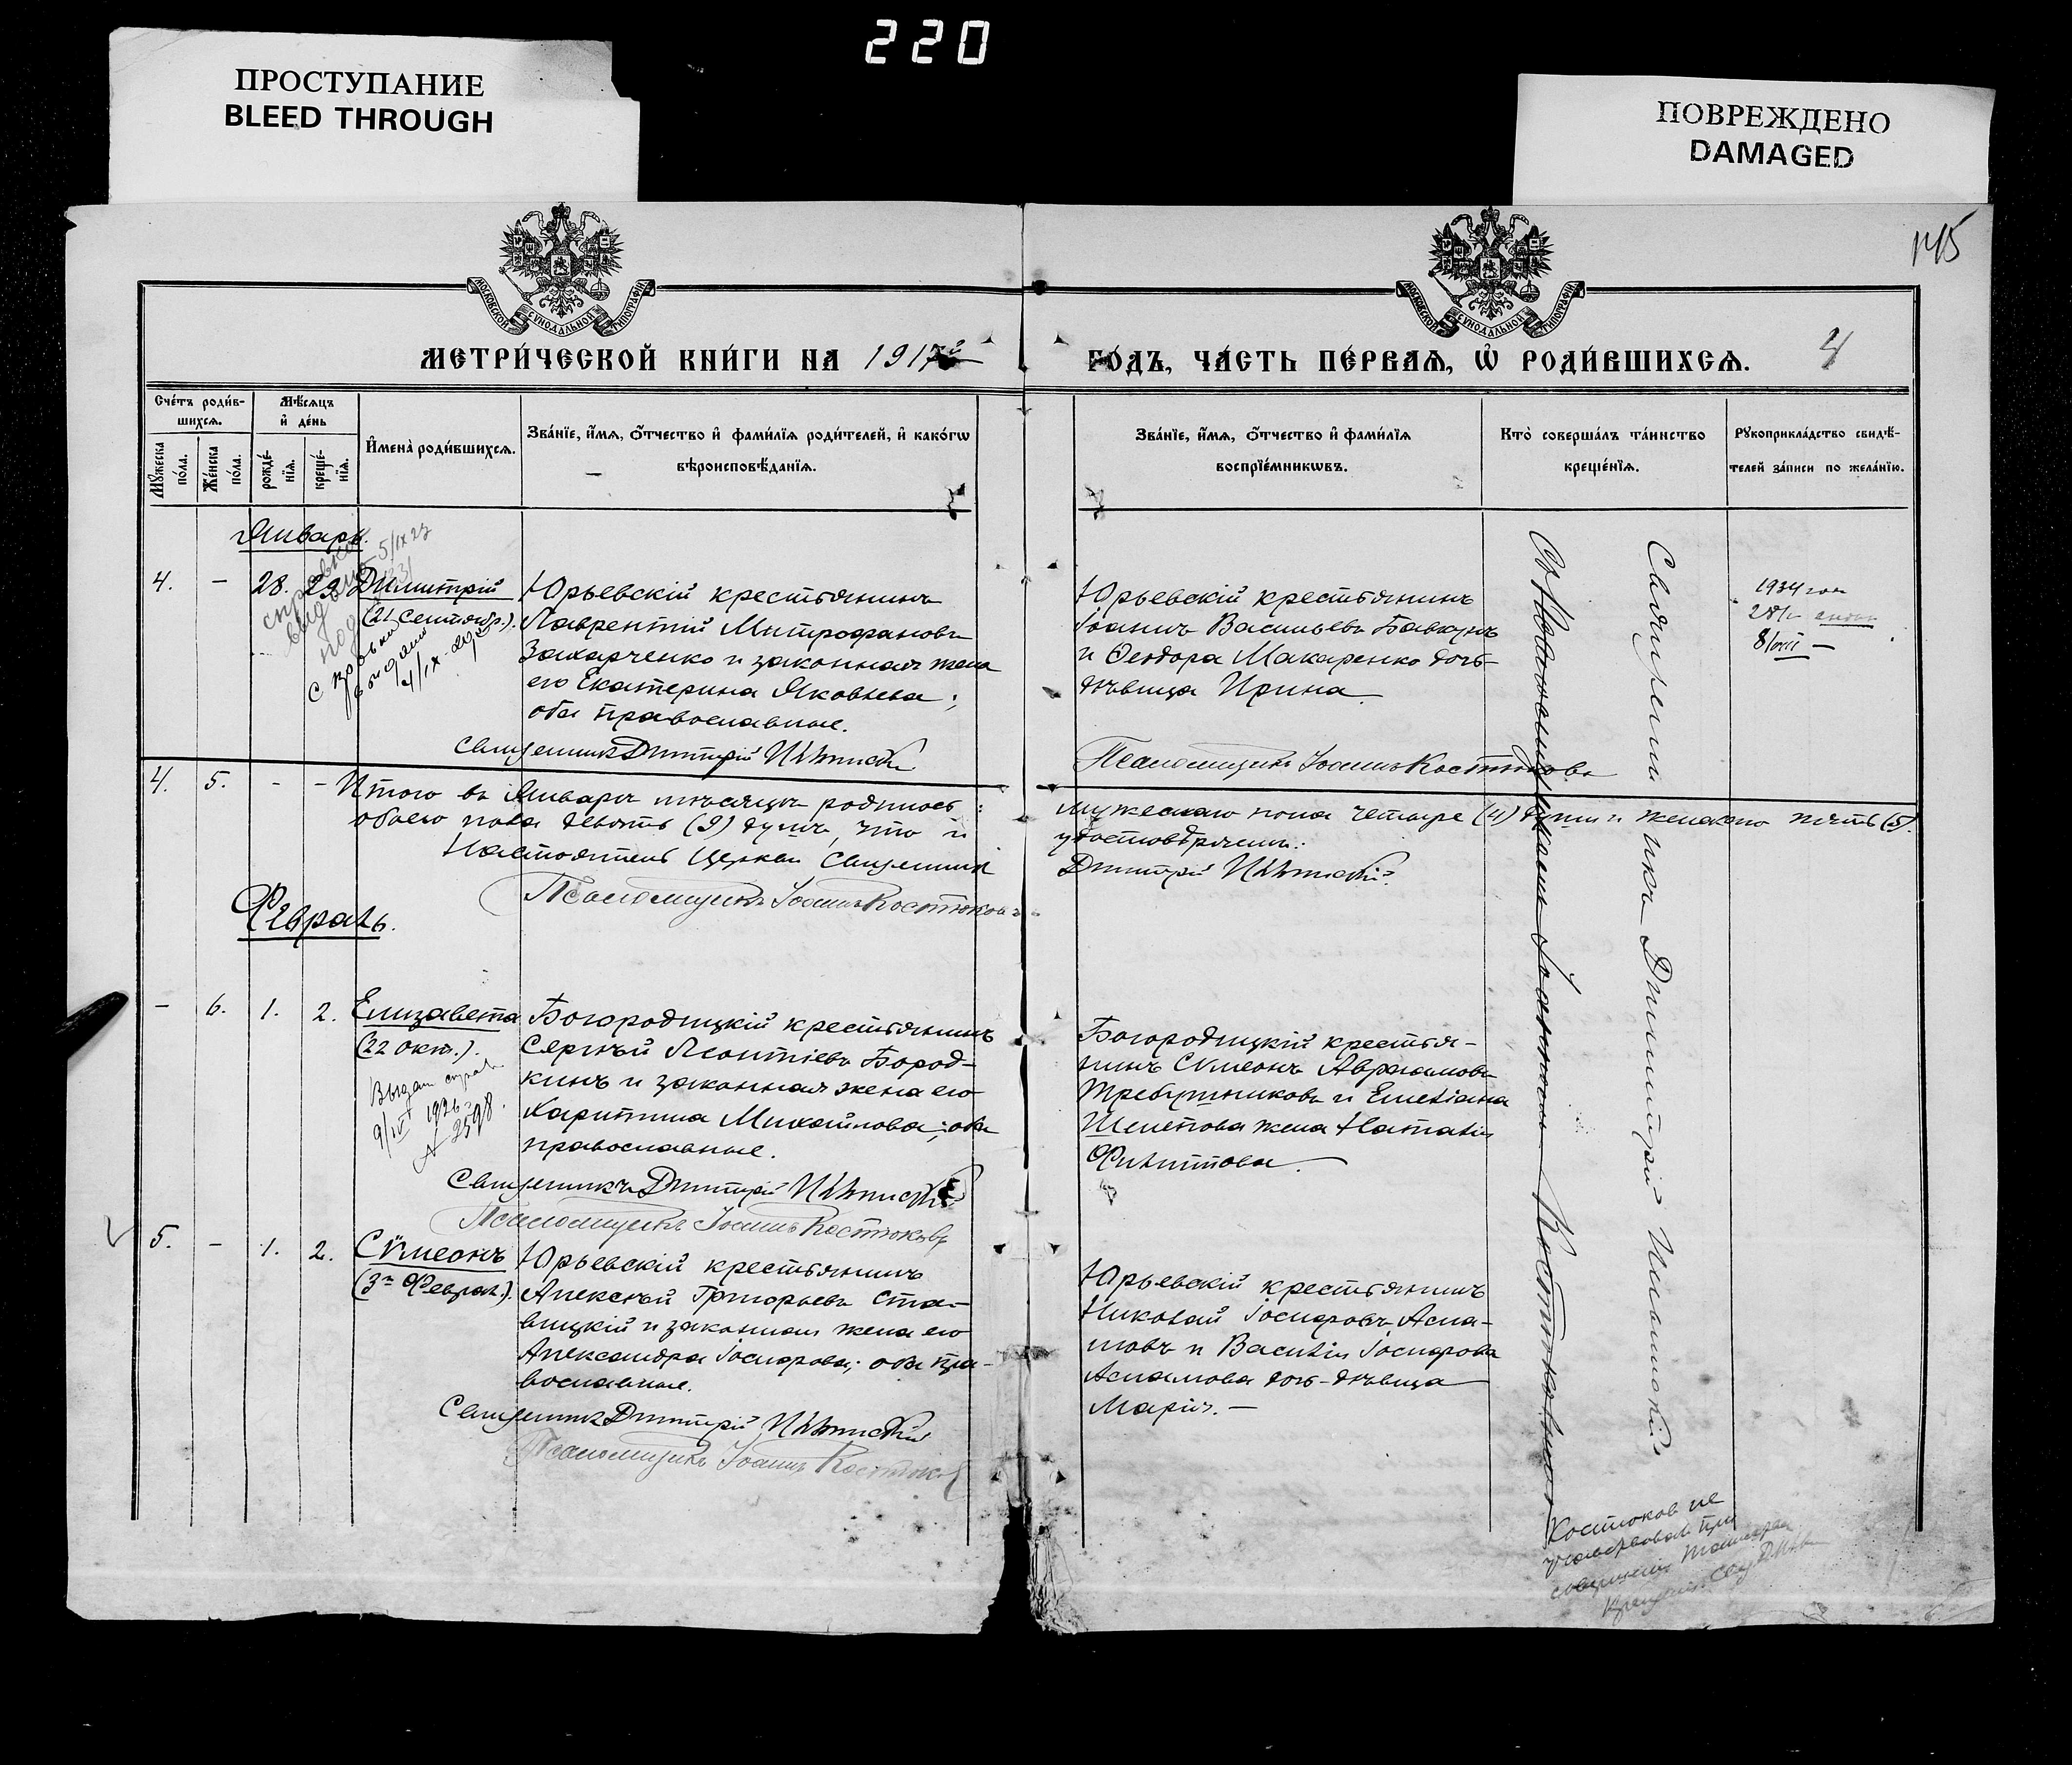 220
ПРОСТУПАНИЕ
BLEED THROUGH
ПОВРЕЖДЕНО
DAMAGED
145
МОСКОВСКОЙ СѴНОДАЛЬНОЙ ТИПОГРАФІИ
МОСКОВСКОЙ СѴНОДАЛЬНОЙ ТИПОГРАФІИ
МЕТРИ́ЧЕСКОЙ КНИ́ГИ НА 1917
ГО́ДЪ, ЧА́СТЬ ПЕ́РВАѦ, Ѡ РОДИ́ВШИХСѦ.
4
Сче́тъ роди́в-
шихсѧ.
Мѣ́сѧцъ
и҆ де́нь
Мꙋ́жеска
по́ла.
Же́нска
по́ла.
рожде́-
нїѧ.
креще́-
нїѧ.
И҆мена̀ роди́вшихсѧ.
Зва́нїе, и҆́мѧ, ѻ҆́тчество и҆ фами́лїѧ роди́телей, и҆ како́гѡ
вѣроисповѣ́данїѧ.
Зва́нїе, и҆́мѧ, ѻ҆́тчество и҆ фами́лїѧ
воспрїе́мникѡвъ.
Кто̀ соверша́лъ та́инство
креще́нїѧ.
Рꙋкоприкла́дство свидѣ́-
телей за́писи по жела́нїю.
Январь.
4. - 28. 29. Димитрій
(21 Сентябр.).
справка
выдана
5/IX 27
выдана
4/IX
Юрьевскій крестьянинъ
Лаврентій Митрофановъ
Захарченко и законная жена
его Екатерина Яковлева;
оба православные.
Священникъ Дмитрій
Юрьевскій крестьянинъ
Іоаннъ Васильевъ Бавкунъ
и Ѳеодора Макаренко дочь-
дѣвица Ирина.
Псаломщикъ Іоаннъ Костюковъ
1934 год
8/VIII —
4. 5. - - Итого въ Январѣ мѣсяцѣ родилось:
обоего пола девять (9) душъ, что и
Настоятель Церкви Священникъ
Псаломщикъ Іоаннъ Костюковъ
мужескаго пола четыре (4) души и женскаго пять (5).
удостовѣряемъ:
Дмитрій
Февраль.
- 6. 1. 2. Елизавета
(22 окт.).
Выдан
9/IV 1926
№ 2598.
Богородицкій крестьянинъ
Сергѣй Леонтіевъ Бород-
кинъ и законная жена его
Харитина Михайлова; оба
православные.
Священникъ Дмитрій
Псаломщикъ Іоаннъ Костюковъ
Богородицкій крестья-
нинъ Сѵмеонъ Авраамовъ
Требушниковъ и Емеліана
Шелепова жена Наталія
Филиппова.
5. - 1. 2. Сѵмеонъ
(3го Феврал.).
Юрьевскій крестьянинъ
Алексѣй Григорьевъ Ста-
вицкій и законная жена его
Александра Іосифова; оба пра-
вославные.
Священникъ Дмитрій
Псаломщикъ Іоаннъ Костюковъ
Юрьевскій крестьянинъ
Николай Іосифовъ Асла-
мовъ и Василія Іосифова
Асламова дочь-дѣвица
Марія. —
Священникъ Дмитрій
Съ Псаломщикомъ Іоанномъ Костюковымъ
Костюков не
участвовал при
совершении таинства
Крещения Свящ.